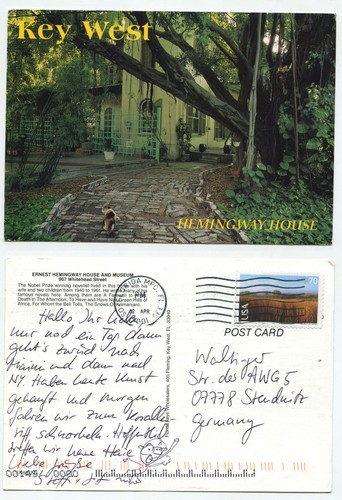 Key West
HEMINGWAY HOUSE
ERNEST HEMINGWAY HOUSE AND MUSEUM
907 Whitehead Street
The Nobel Prize winning novelist lived in this home with his
wife and two children from 1940 to 1961. He wrote many of his
famous novels here. Among them are A Farewell to Arms,
Death In The Afternoon, To Have and Have Not, Green Hills of
Africa, For Whom the Bell Tolls, The Snows of Kilimanjaro.
PM
APR
USA
70
POST CARD
Hallo Ihr Lieben
nur noch ein Tag dann
geht's zurück nach
Miami und dann nach
NY. Haben heute Kunst
gekauft und morgen
fahren wir zum Korallen
riff schnorcheln. Hoffentlich
treffen wir keine Haie
Liebe Grüße
Waltinger
Str. des AWG 5
07778
Germany
405 Fleming, Key West, FL 33040